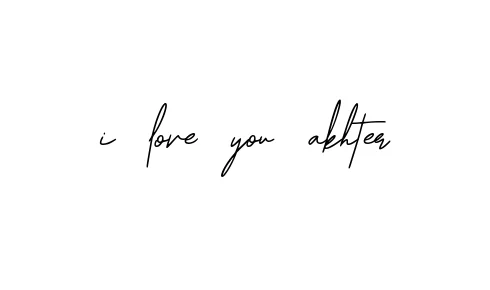 i love you akhter